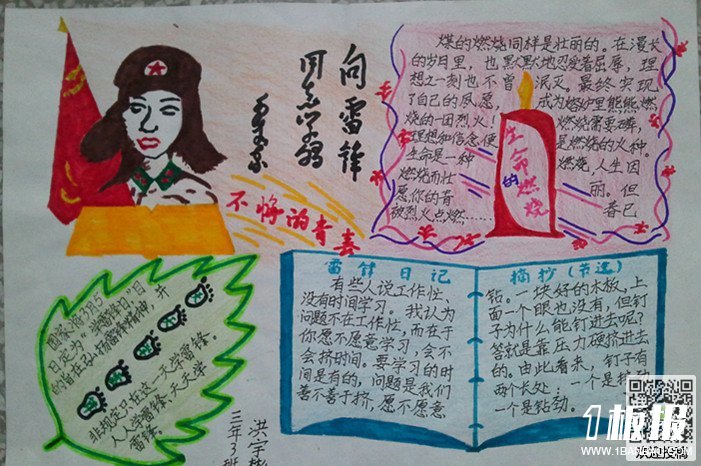 向雷锋
同志学习
毛泽东
不悔的青春
煤的燃烧同样是壮丽的。在漫长
的岁月里，也默默地忍受着屈辱，理
想之一刻也不曾泯灭。最终实现
了自己的夙愿，成为熔炉里熊熊燃
烧的一团烈火！燃烧需要磷，
理想和信念便是燃烧的火种。
生命是一种燃烧，人生因
燃烧而壮丽。但
愿你的青春已
被烈火点燃……
生命的燃烧
国家把3月5
日定为“学雷锋日”目
的旨在弘扬雷锋精神，并
非规定只在这一天学雷锋。
人人学雷锋，天天学
雷锋。
三年3班
洪宇
雷锋日记
有些人说工作忙、
没有时间学习。我认为
问题不在工作忙，而在于
你愿不愿意学习，会不
会挤时间。要学习的时
间是有的，问题是我们
善不善于挤，愿不愿意
摘抄（节选）
钻。一块好的木板，上
面一个眼也没有，但钉
子为什么能钉进去呢？
答就是靠压力硬挤进去
的。由此看来，钉子有
两个长处：一个是挤劲
一个是钻劲。
1板报
WWW.1BANBAO.COM
欢迎投稿